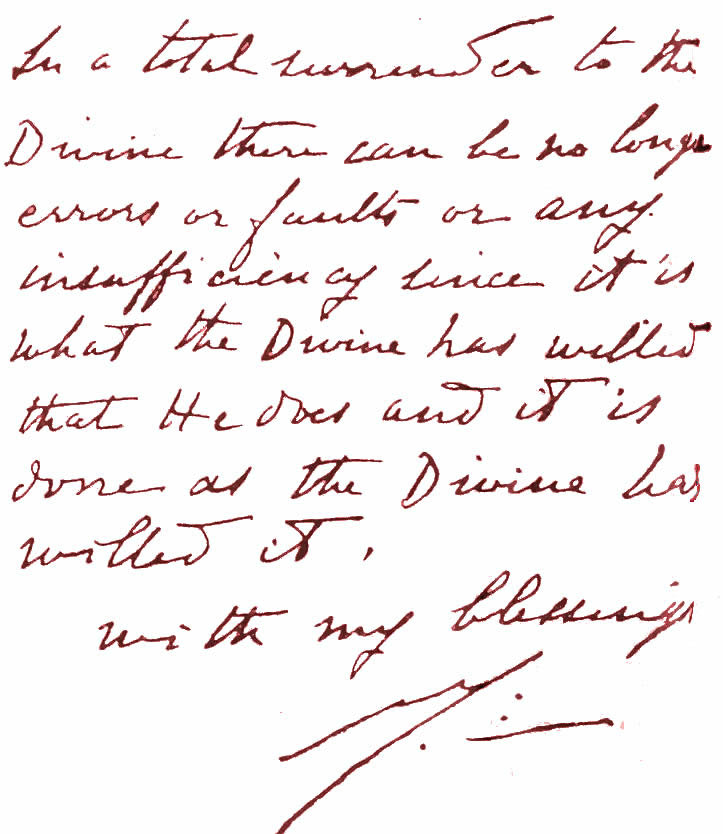 In a total surrender to the
Divine there can be no longer
errors or faults or any
insufficiency since it is
what the Divine has willed
that He does and it is
done as the Divine has
willed it.
with my blessings